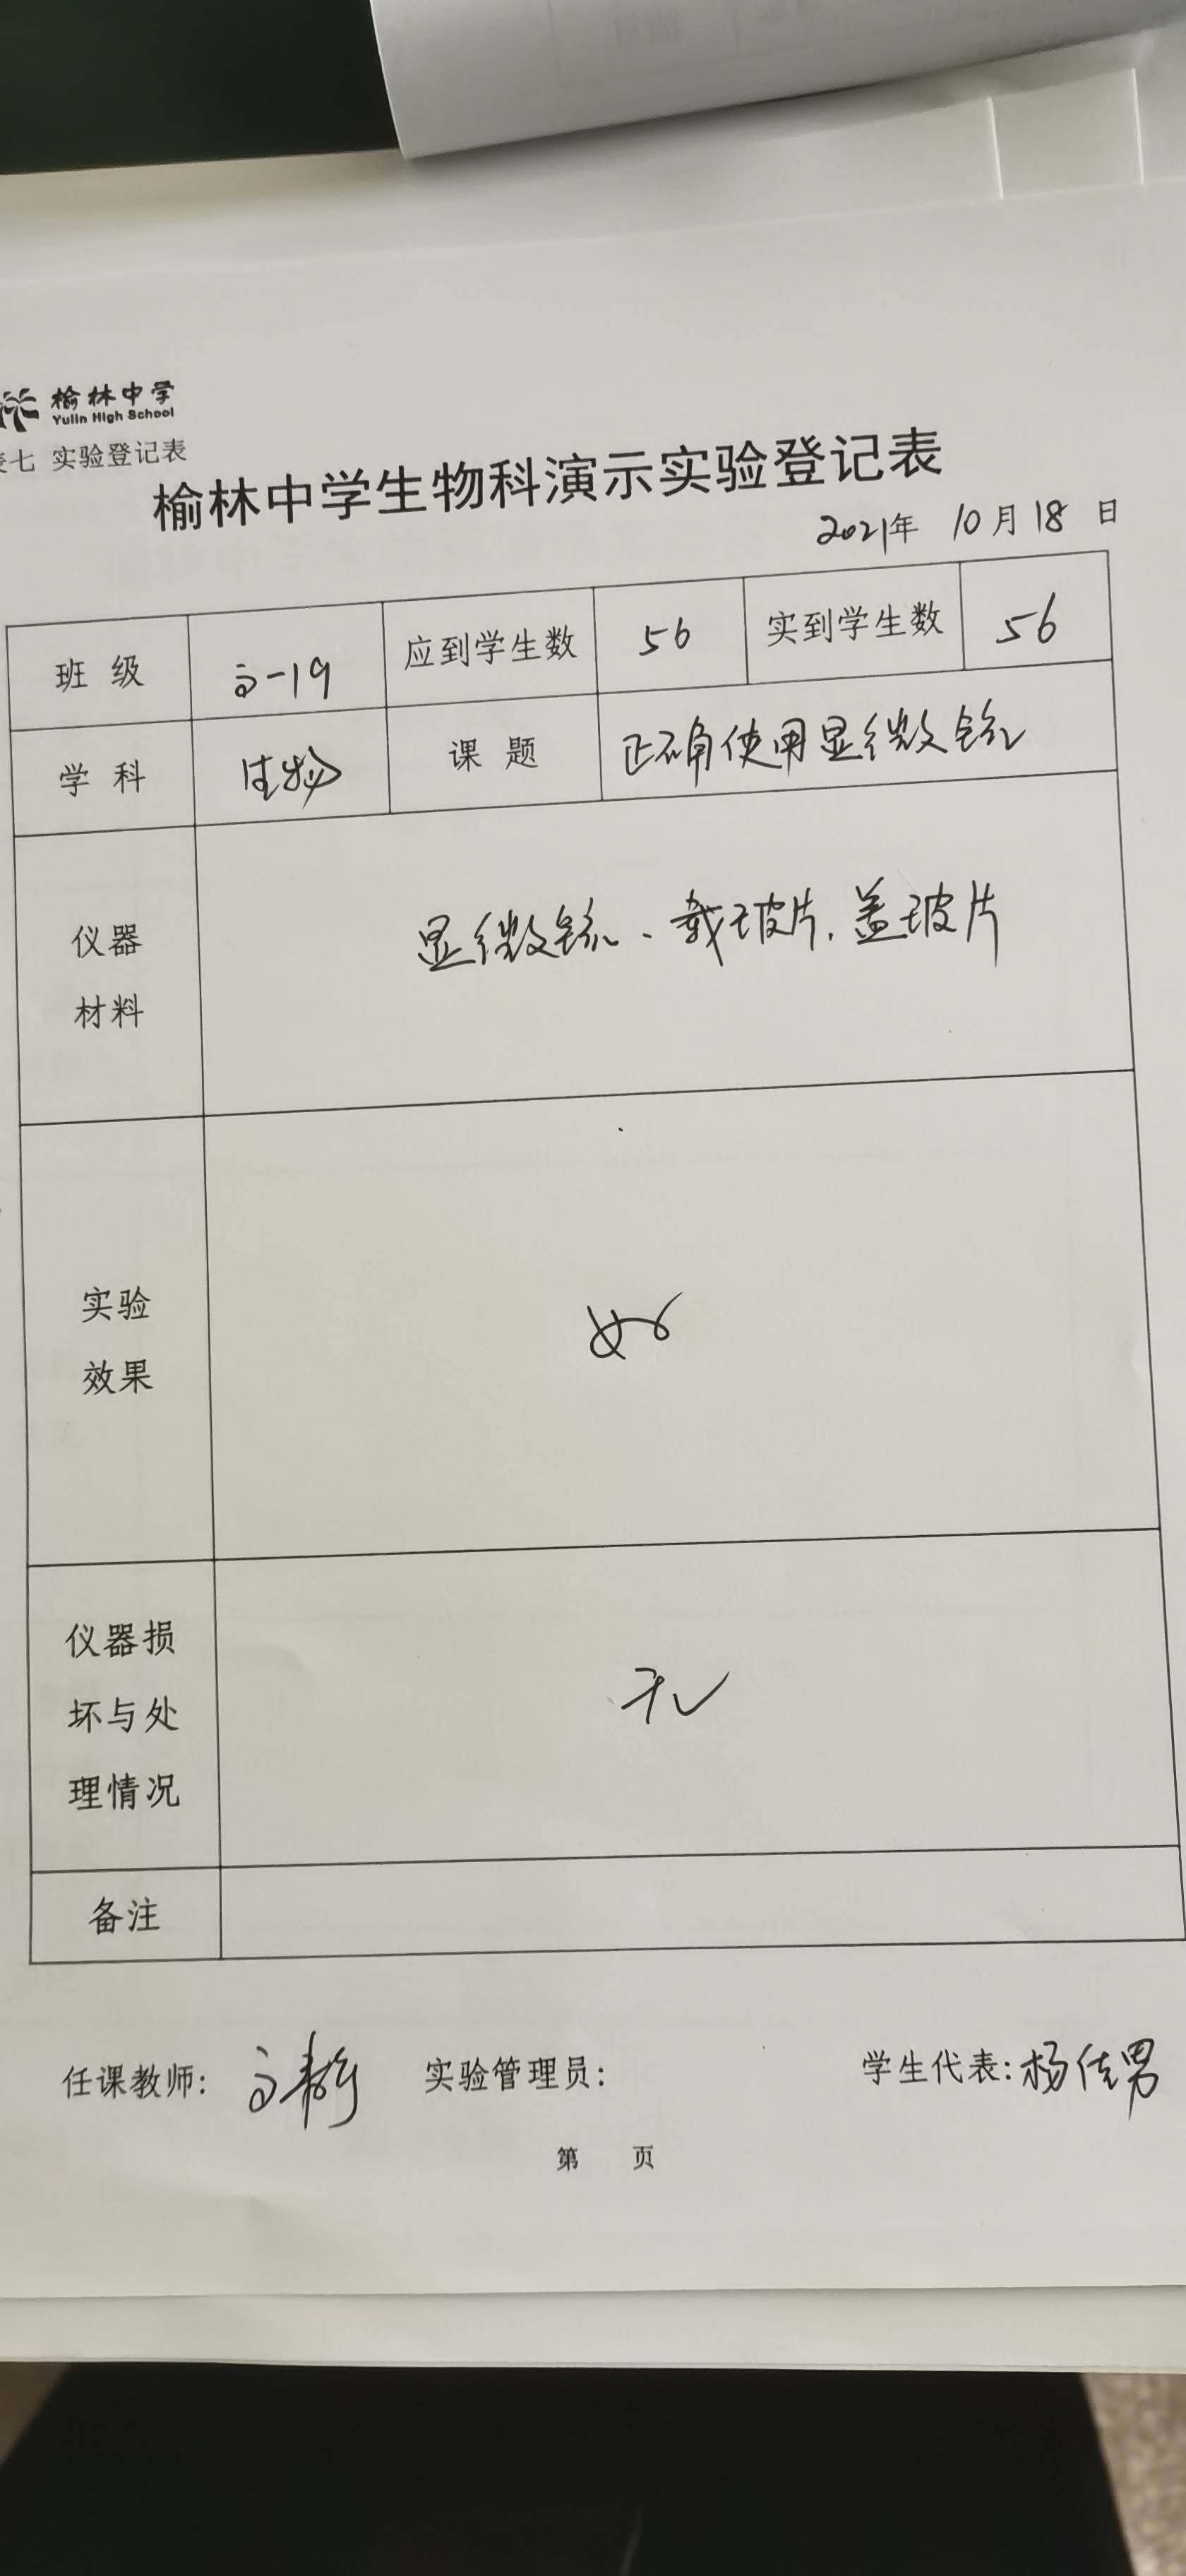 榆林中学
Yulin High School
表七 实验登记表
榆林中学生物科演示实验登记表
2021年 10月18日
班级 高一19 应到学生数 56 实到学生数 56
学科 生物 课题 正确使用显微镜
仪器
材料
显微镜、载玻片,盖玻片
实验
效果
好
仪器损
坏与处
理情况
无
备注
任课教师: 高静 实验管理员: 学生代表:杨佳男
第 页